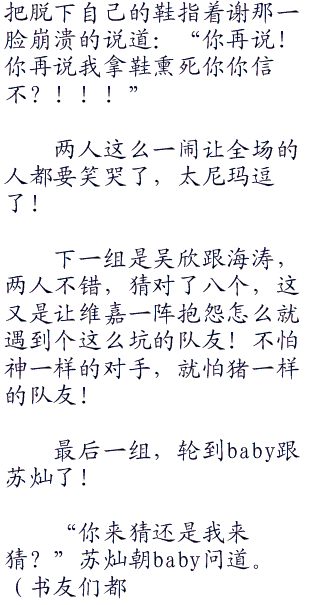 把脱下自己的鞋指着谢那一
脸崩溃的说道：“你再说！
你再说我拿鞋熏死你你信
不？！！！”
两人这么一闹让全场的
人都要笑哭了，太尼玛逗
了！
下一组是吴欣跟海涛，
两人不错，猜对了八个，这
又是让维嘉一阵抱怨怎么就
遇到个这么坑的队友！不怕
神一样的对手，就怕猪一样
的队友！
最后一组，轮到baby跟
苏灿了！
“你来猜还是我来
猜？”苏灿朝baby问道。
（书友们都